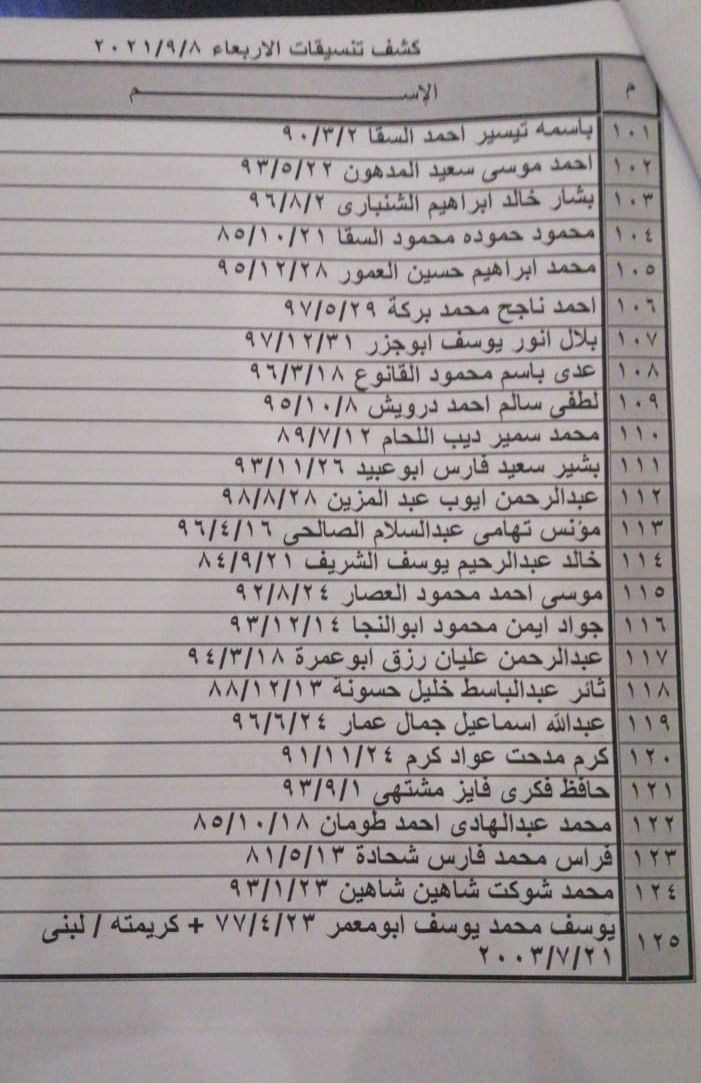 كشف تنسيقات الاربعاء ٢٠٢١/٩/٨
م الإســـــــــــــــم
١٠١ باسمه تيسير احمد السقا ٩٠/٣/٢
١٠٢ احمد موسى سعيد المدهون ٩٣/٥/٢٢
١٠٣ بشار خالد ابراهيم الشنبارى ٩٦/٨/٢
١٠٤ محمود حموده محمود السقا ٨٥/١٠/٢١
١٠٥ محمد ابراهيم حسين العمور ٩٥/١٢/٢٨
١٠٦ احمد ناجح محمد بركة ٩٧/٥/٢٩
١٠٧ بلال انور يوسف ابوجزر ٩٧/١٢/٣١
١٠٨ عدى باسم محمود القانوع ٩٦/٣/١٨
١٠٩ لطفى سالم احمد درويش ٩٥/١٠/٨
١١٠ محمد سمير ديب اللحام ٨٩/٧/١٢
١١١ بشير سعيد فارس ابوعبيد ٩٣/١١/٢٦
١١٢ عبدالرحمن ايوب عبد المزين ٩٨/٨/٢٨
١١٣ مؤنس تهامى عبدالسلام الصالحى ٩٦/٤/١٦
١١٤ خالد عبدالرحيم يوسف الشريف ٨٤/٩/٢١
١١٥ موسى احمد محمود العصار ٩٢/٨/٢٤
١١٦ جواد ايمن محمود ابوالنجا ٩٣/١٢/١٤
١١٧ عبدالرحمن عليان رزق ابوعمرة ٩٤/٣/١٨
١١٨ ثائر عبدالباسط خليل حسونة ٨٨/١٢/١٣
١١٩ عبدالله اسماعيل جمال عمار ٩٦/٦/٢٤
١٢٠ كرم مدحت عواد كرم ٩١/١١/٢٤
١٢١ حافظ فكرى فايز مشتهى ٩٣/٩/١
١٢٢ محمد عبدالهادى احمد طومان ٨٥/١٠/١٨
١٢٣ فراس محمد فارس شحادة ٨١/٥/١٣
١٢٤ محمد شوكت شاهين شاهين ٩٣/١/٢٣
١٢٥ يوسف محمد يوسف ابومعمر ٧٧/٤/٢٣ + كريمته / لبنى
٢٠٠٣/٧/٢١